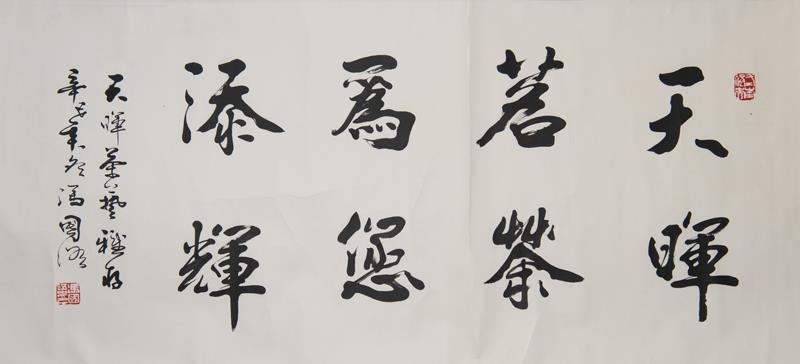 天暉
茗茶
爲您
添輝
天暉茶藝雅存
辛年冬馮國